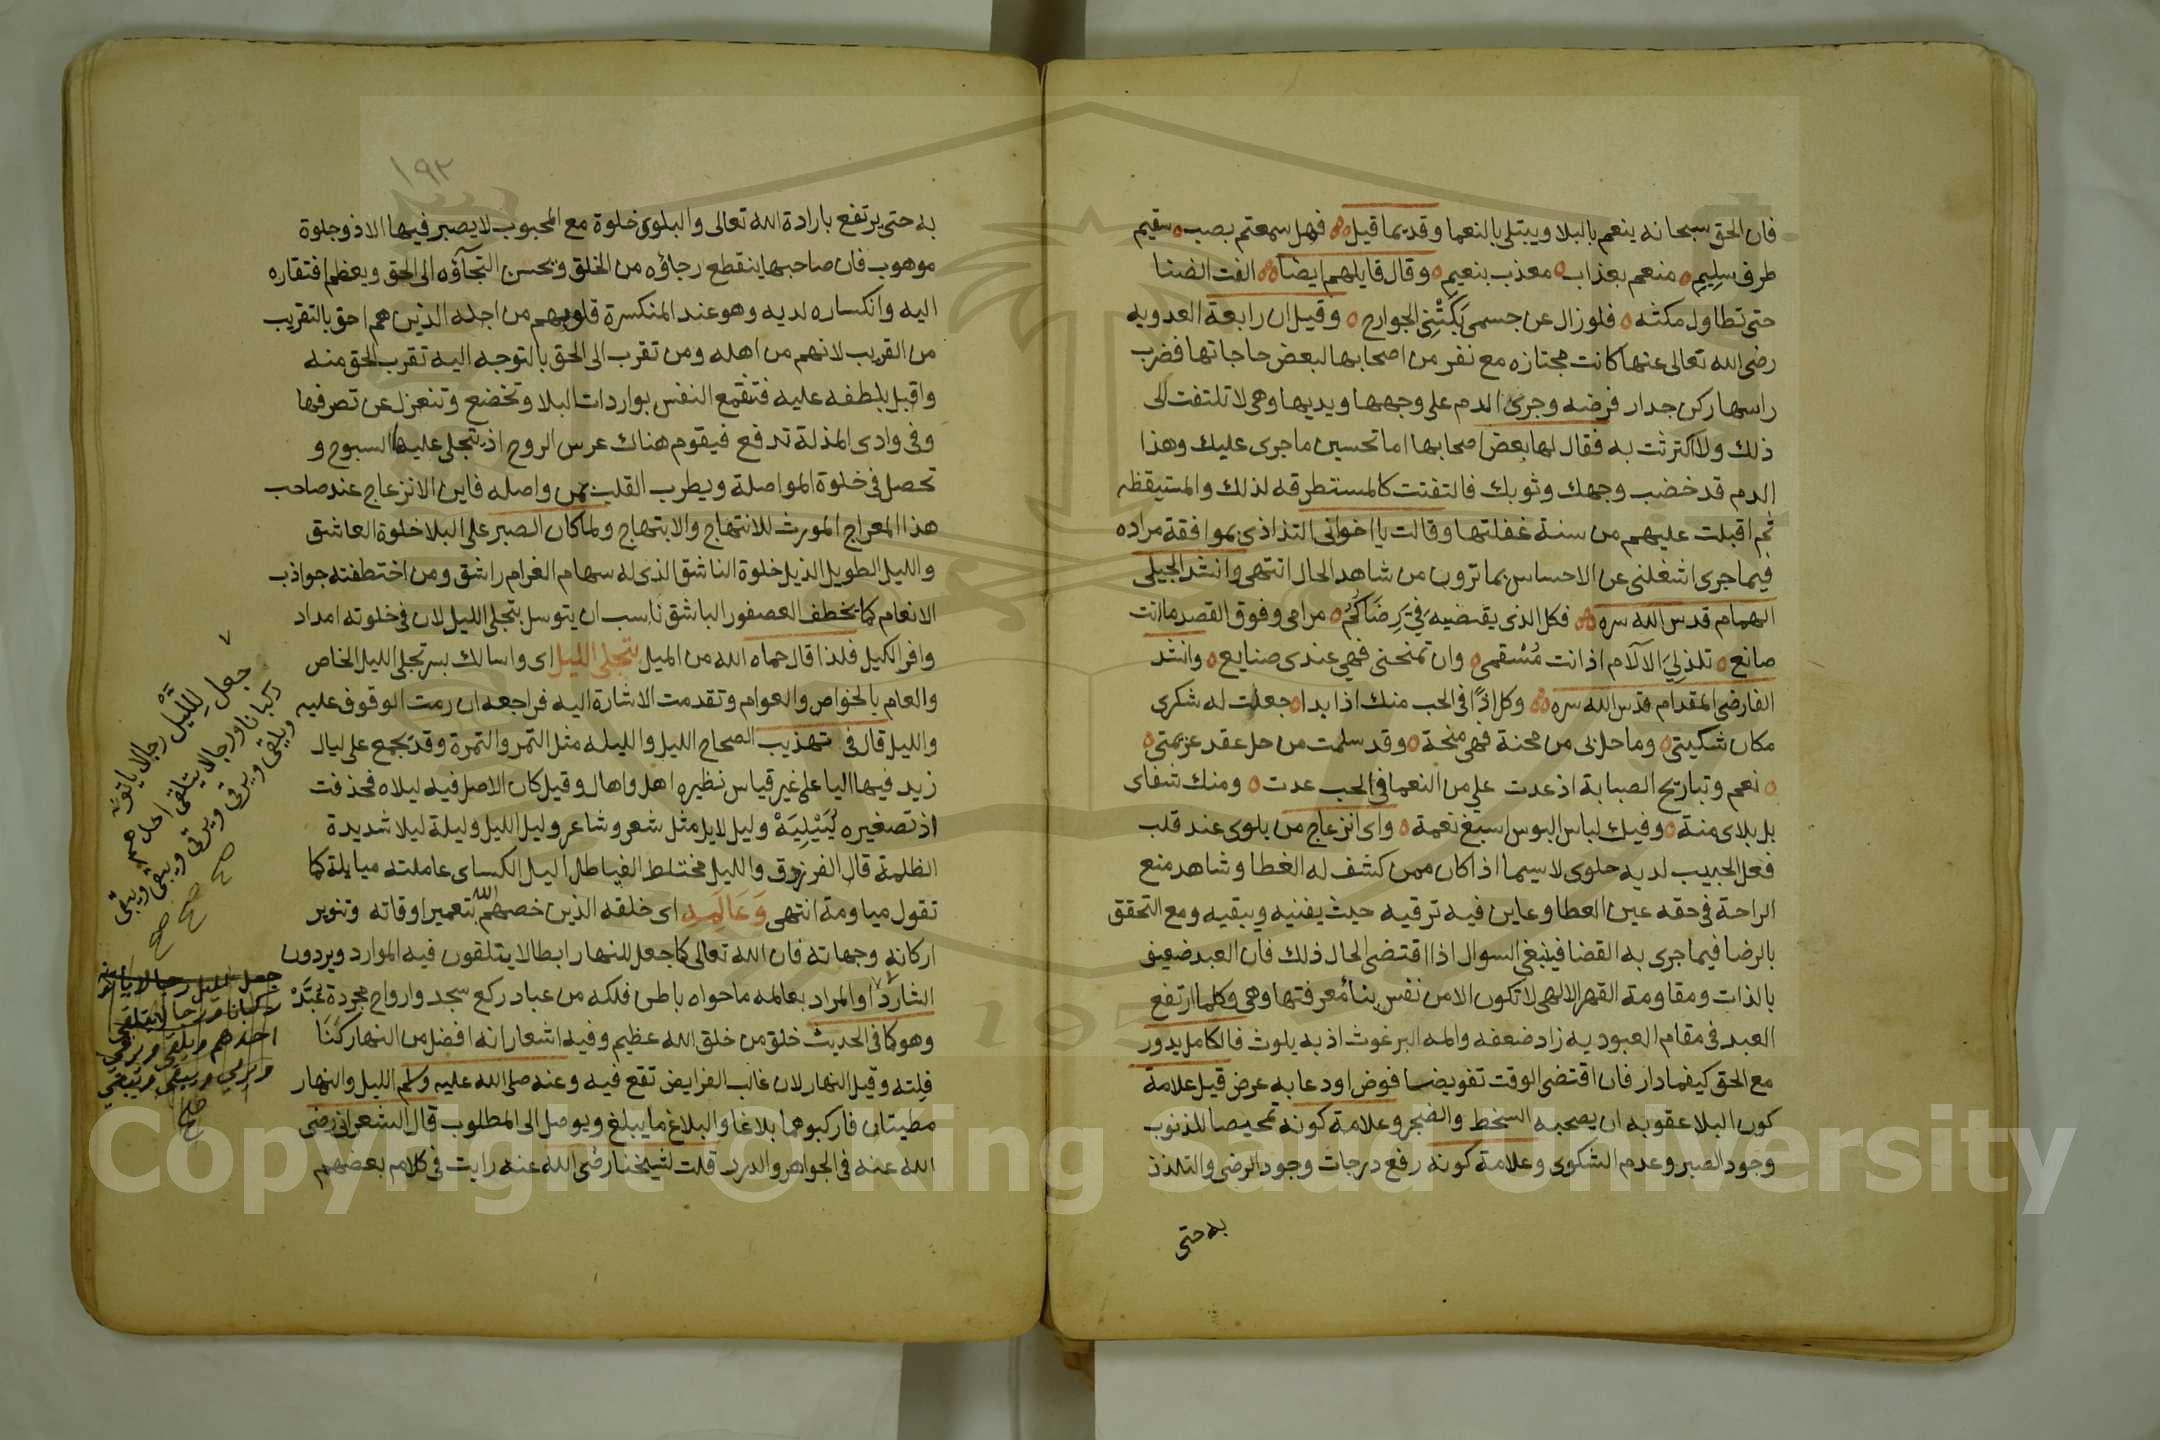 فان الحق سبحانه ينعم بالبلا ويبتلى بالنعما وقديما قيل فهل سمعتم بصب سقيم
طرف سليم منعم بعذاب معذب بنعيم وقال قايلهم ايضا الفت الضنا
حتى تطاول مكثه فلو زال عن جسمى بكتنى الجوارح وقيل ان رابعة العدويه
رضى الله تعالى عنها كانت مجتازه مع نفر من اصحابها لبعض حاجاتها فضرب
راسها ركن جدار فرضه وجرى الدم على وجهها ويديها وهى لا تلتفت الى
ذلك ولا اكترثت به فقال لها بعض اصحابها اما تحسين ما جرى عليك وهذا
الدم قد خضب وجهك وثوبك فالتفتت كالمستطرقه لذلك والمستيقظه
ثم اقبلت عليهم من سنة غفلتها وقالت يا اخوانى التذاذى بموافقة مراده
فيما جرى اشغلنى عن الاحساس بما ترون من شاهد الحال انتهى وانشد الجيلى
الهمام قدس الله سره فكل الذى يقضيه فى رضاكم مرامى وفوق القصد ما انت
صانع تلذ لى الآلام اذ انت مسقمى وان تمتحنى فهى عندى صنايع وانشد
الفارضى المقدام قدس الله سره وكل اذى فى الحب منك اذا بدا جعلت له شكرى
مكان شكيتى وما حل بى من محنة فهى منحة وقد سلمت من حل عقد عزيمتى
نعم وتباريح الصبابة اذ عدت على من النعما فى الحب عدت ومنك شقاى
بل بلاى منة وفيك لباس البوس اسبغ نعمة واى انزعاج من بلوى عند قلب
فعل الحبيب لديه حلوى لاسيما اذا كان ممن كشف له الغطا وشاهد منع
الراحة فى حقه عين العطا وعاين فيه ترقيه حيث يفنيه ويبقيه ومع التحقق
بالرضا فيما جرى به القضا فينبغى السوال اذا اقتضى الحال ذلك فان العبد ضعيف
بالذات ومقاومة القهر الالهى لا تكون الا من نفس بنا معرفتها وهى وكلما ارتفع
العبد فى مقام العبوديه زاد ضعفه والمه البرغوث اذ به يلوث فالكامل يدور
مع الحق كيفما دار فان اقتضى الوقت تفويضا فوض او دعا به عرض قيل علامة
كون البلا عقوبه ان يصحبه السخط والضجر وعلامة كونه تمحيصا للذنوب
وجود الصبر وعدم الشكوى وعلامة كونه رفع درجات وجود الرضى والتلذذ
به حتى
١٩٢
به حتى يرتفع بارادة الله تعالى والبلوى خلوة مع المحبوب لا يصبر فيها الا ذو جلوة
موهوب فان صاحبها ينقطع رجاؤه من الخلق ويحسن التجاؤه الى الحق ويعظم افتقاره
اليه وانكساره لديه وهو عند المنكسرة قلوبهم من اجله الذين هم احق بالتقريب
من القريب لانهم من اهله ومن تقرب الى الحق بالتوجه اليه تقرب الحق منه
واقبل بلطفه عليه فتنقمع النفس بواردات البلا وتخضع وتنعزل عن تصرفها
وفى وادى المذلة تدفع فيقوم هناك عرس الروح اذ يتجلى عليها السبوح و
تحصل فى خلوة المواصلة ويطرب القلب بمن واصله فاين الانزعاج عند صاحب
هذا المعراج المورث للانتهاج والابتهاج ولما كان الصبر على البلا خلوة العاشق
والليل الطويل الذيل خلوة الناشق الذى له سهام الغرام راشق ومن اختطفته جواذب
الانعام كما يخطف العصفور الباشق ناسب ان يتوسل بتجلى الليل لان فى خلوته امداد
وافر الكيل فلذا قال حماه الله من الميل بتجلى الليل اى واسالك بسر تجلى الليل الخاص
والعام بالخواص والعوام وتقدمت الاشارة اليه فراجعه ان رمت الوقوف عليه
والليل قال فى تهذيب الصحاح الليل والليله مثل التمر والتمرة وقد يجمع على ليال
زيد فيها اليا على غير قياس نظيره اهل واهال وقيل كان الاصل فيه ليلاه فحذفت
اذ تصغيره لييلية وليل لايل مثل شعر وشاعر وليل الليل وليلة ليلا شديدة
الظلمة قال الفرزدق والليل مختلط الغياطل اليل الكساى عاملته ميايلة كما
تقول مياومة انتهى وعالمه اى خلقه الذين خصهم الله بتعمير اوقاته وتنوير
اركانه وجهاته فان الله تعالى كما جعل للنهار ابطالا يتلقون فيه الموارد ويردون
الشارد او المراد بعالمه ما حواه باطن فلكه من عباد ركع سجد وارواح مجردة
وهو كما فى الحديث خلق من خلق الله عظيم وفيه اشعار انه افضل من النهار
وقيل النهار لان غالب الفرايض تقع فيه وعنه صلى الله عليه وسلم الليل والنهار
مطيتان فاركبوهما بلاغا والبلاغ ما يبلغ ويوصل الى المطلوب قال الشعرانى رضى
الله عنه فى الجواهر والدرر قلت لشيخنا رضى الله عنه رايت فى كلام بعضهم
جعل لليل رجالا ياتونه
ركبانا ورجالا يتلقى احدهم
ويلقى ويرقى ويرقى ويبقى ويبقى
صح صح صح
جعل لليل رجالا ياتونه
ركبانا ورجالا يتلقى
احدهم ويلقى ويرقى
ويرقى ويبقى ويبقى
صح
Copyright © King Saud University
1957